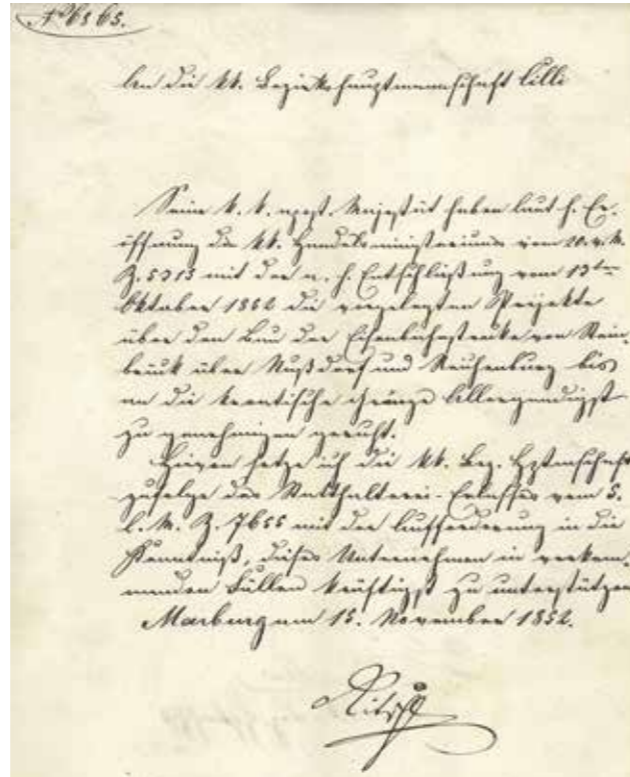 No 6565.
An die kk. Bezirkshauptmannschaft Cilli
Seine k. k. apost. Majestät haben laut h. Er-
öffnung des kk. Handelsministeriums vom 20. v. M.
Z. 5313 mit der a. h. Entschließung vom 13ten
Oktober 1852 die vorgelegten Projekte
über den Bau der Eisenbahnstrecke von Stein-
brück über Nußdorf und Reichenburg bis
an die kroatische Gränze Allergnädigst
zu genehmigen geruht.
Hievon setze ich die kk. Bez. Hptmschaft
zufolge des Statthalterei-Erlasses vom 5.
l. M. Z. 7655 mit der Aufforderung in die
Kenntniß, dieses Unternehmen in vorkom-
menden Fällen kräftigst zu unterstützen
Marburg am 15. November 1852.